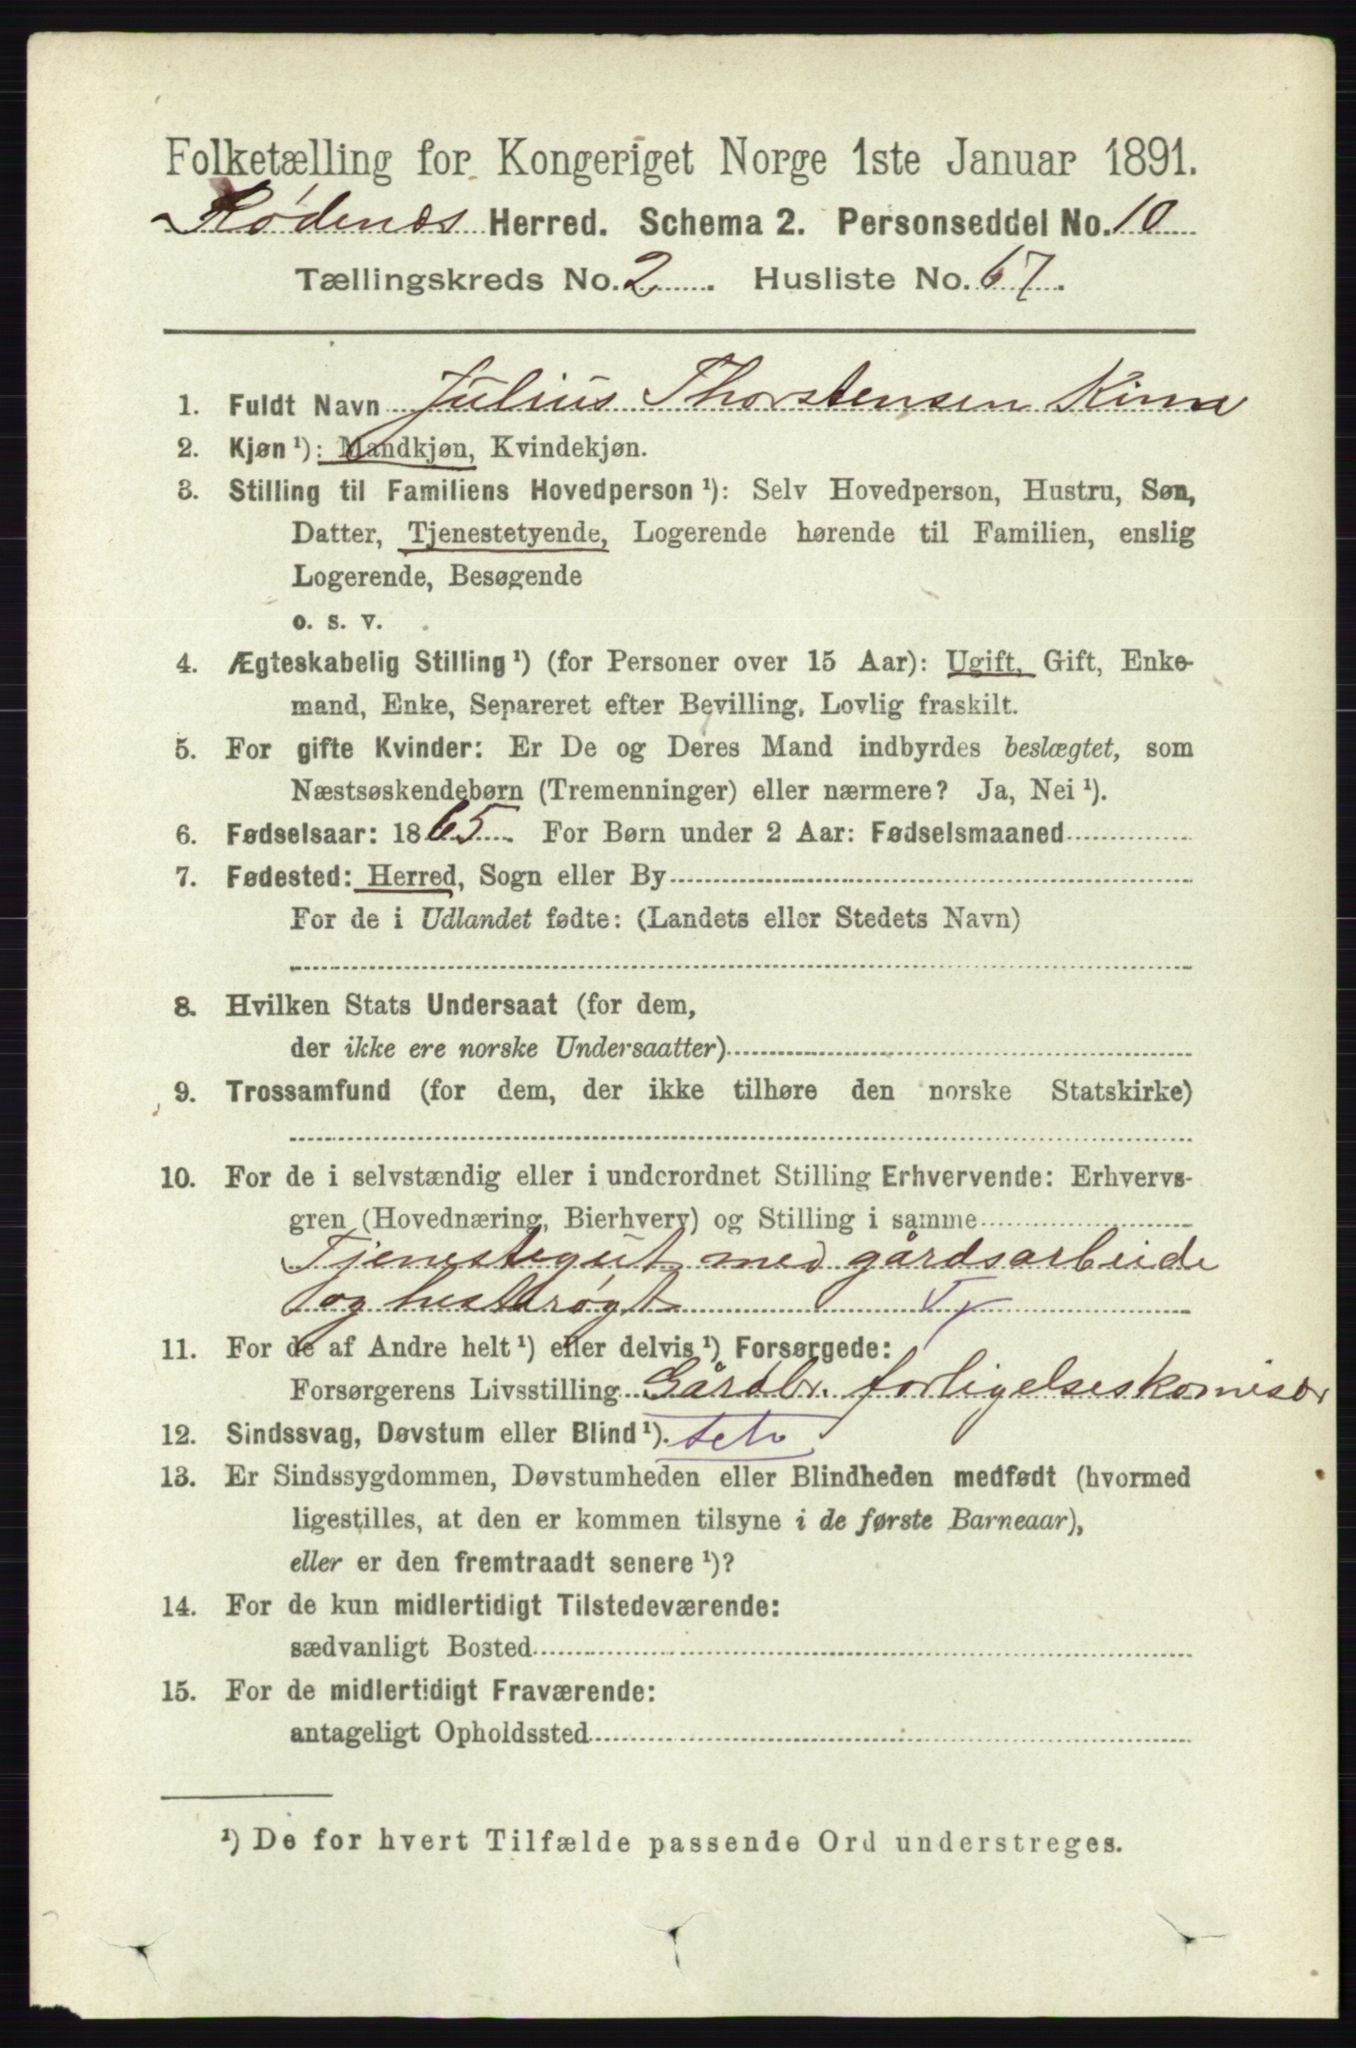 Folketælling for Kongeriget Norge 1ste Januar 1891.
Rødenæs Herred. Schema 2. Personseddel No. 10
Tællingskreds No. 2. Husliste No. 67.
1. Fuldt Navn Julius Thorstensen Kime
2. Kjøn¹): Mandkjøn, Kvindekjøn.
3. Stilling til Familiens Hovedperson¹): Selv Hovedperson, Hustru, Søn,
Datter, Tjenestetyende, Logerende hørende til Familien, enslig
Logerende, Besøgende
o. s. v.
4. Ægteskabelig Stilling¹) (for Personer over 15 Aar): Ugift, Gift, Enke-
mand, Enke, Separeret efter Bevilling, Lovlig fraskilt.
5. For gifte Kvinder: Er De og Deres Mand indbyrdes beslægtet, som
Næstsøskendebørn (Tremenninger) eller nærmere? Ja, Nei¹).
6. Fødselsaar: 1865. For Børn under 2 Aar: Fødselsmaaned
7. Fødested: Herred, Sogn eller By
For de i Udlandet fødte: (Landets eller Stedets Navn)
8. Hvilken Stats Undersaat (for dem,
der ikke ere norske Undersaatter)
9. Trossamfund (for dem, der ikke tilhøre den norske Statskirke)
10. For de i selvstændig eller i underordnet Stilling Erhvervende: Erhvervs-
gren (Hovednæring, Bierhverv) og Stilling i samme
Tjenestegut med gårdsarbeide
og hestrøgt
11. For de af Andre helt¹) eller delvis¹) Forsørgede:
Forsørgerens Livsstilling Gårdbr. forligelseskomisær
12. Sindssvag, Døvstum eller Blind¹).
13. Er Sindssygdommen, Døvstumheden eller Blindheden medfødt (hvormed
ligestilles, at den er kommen tilsyne i de første Barneaar),
eller er den fremtraadt senere¹)?
14. For de kun midlertidigt Tilstedeværende:
sædvanligt Bosted
15. For de midlertidigt Fraværende:
antageligt Opholdssted
¹) De for hvert Tilfælde passende Ord understreges.